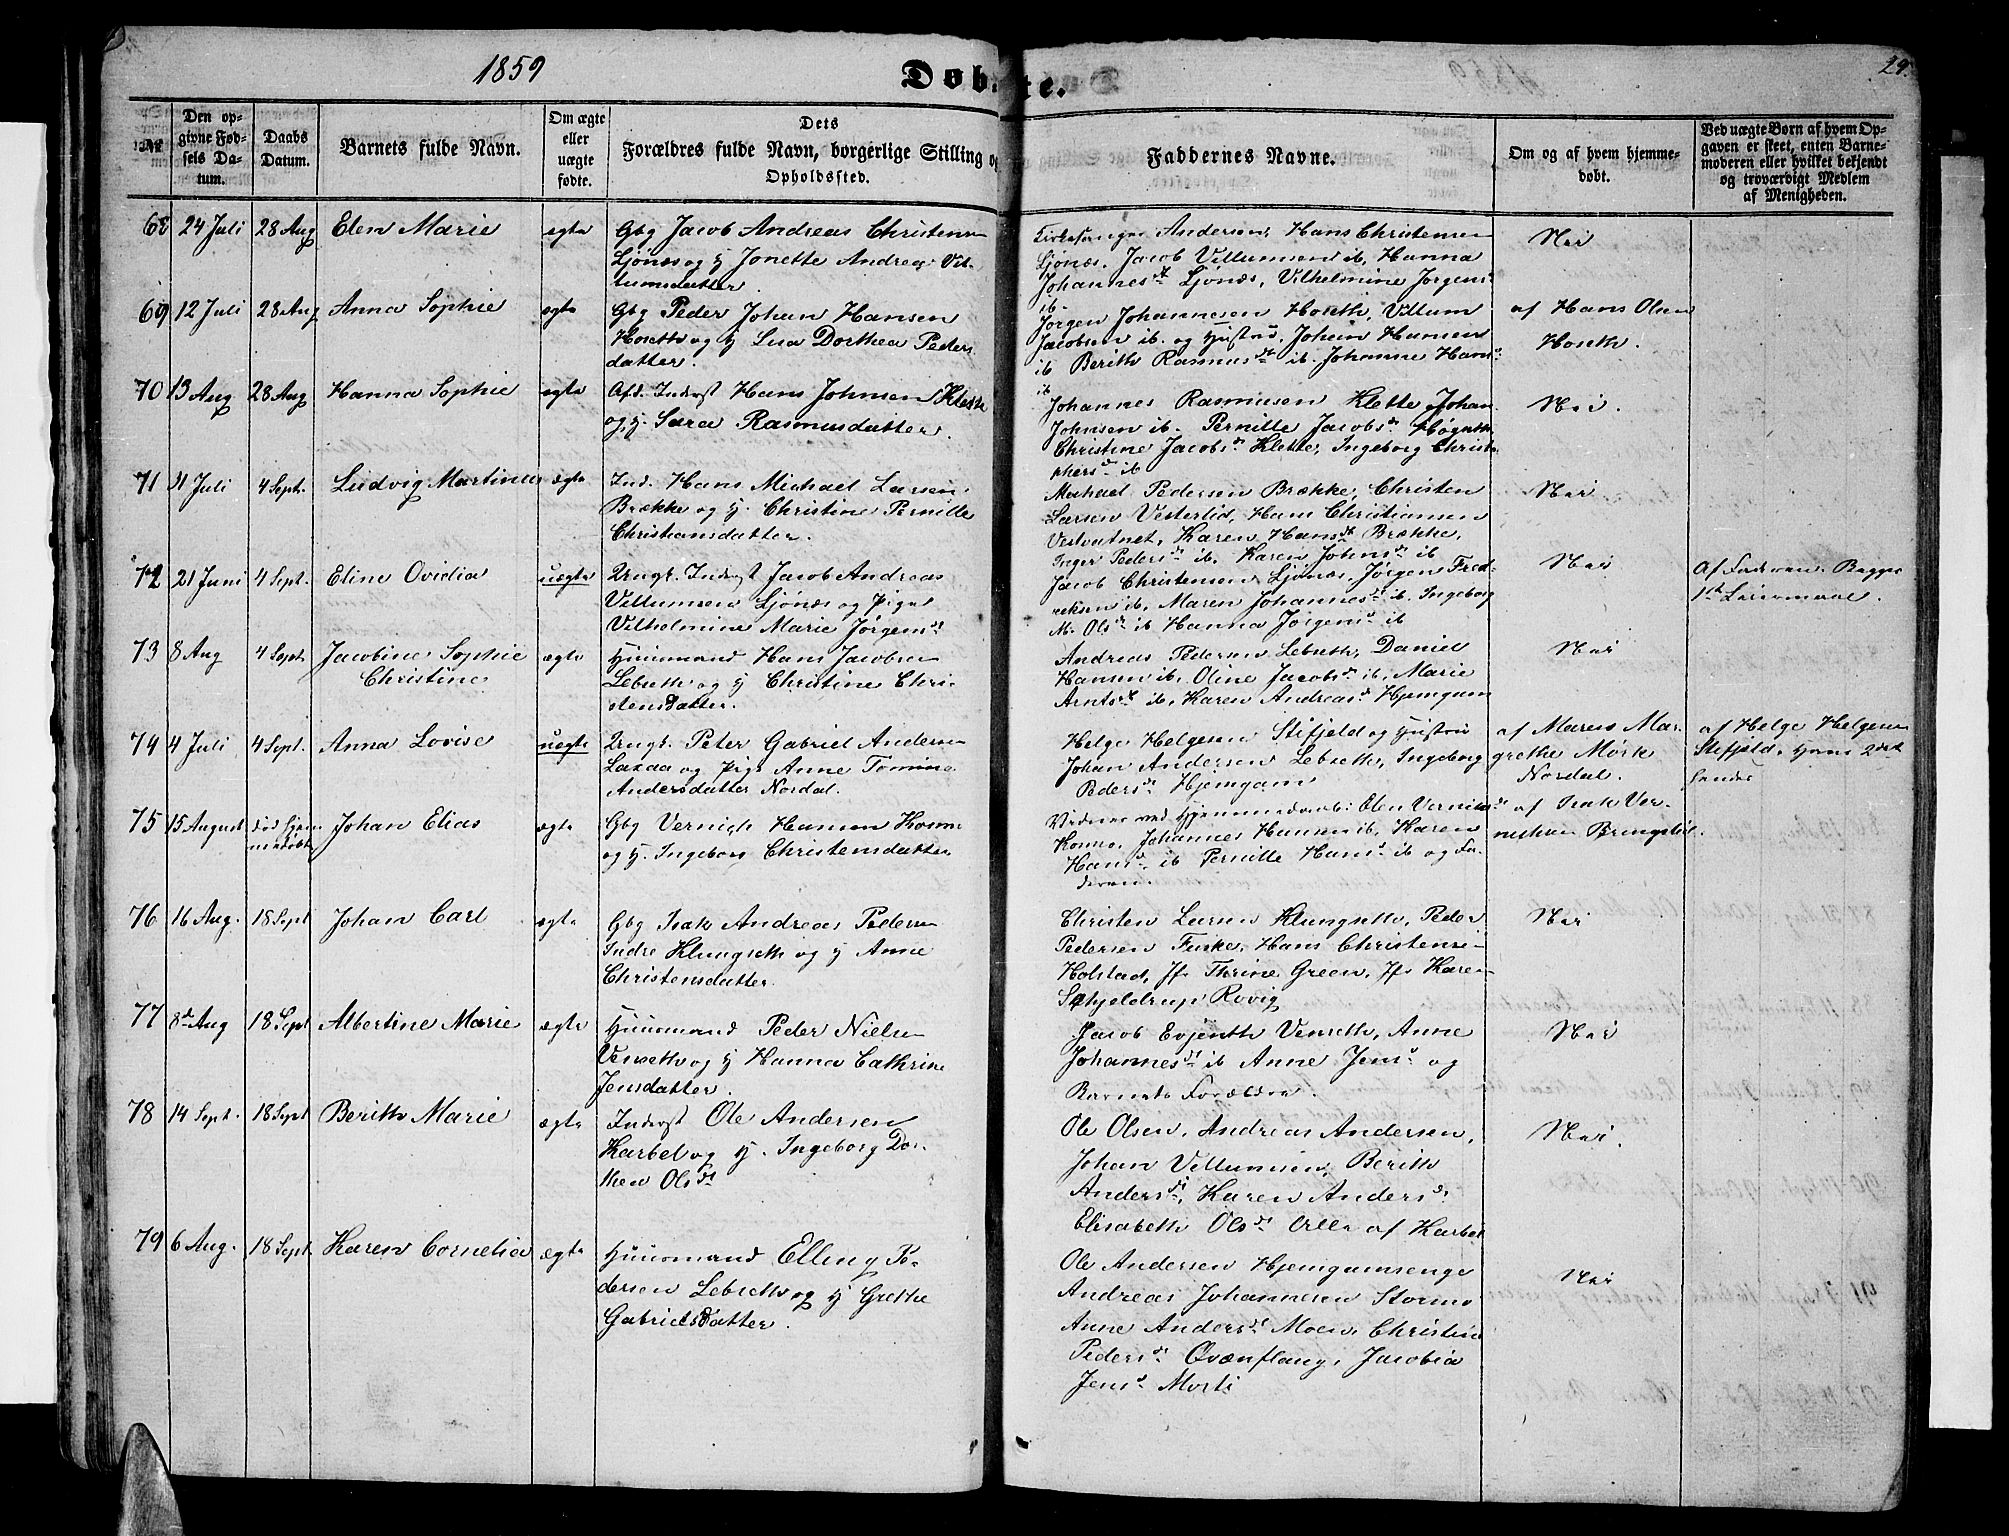 1859
Døbte.
29.
No
Den opgivne Fødsels Datum.
Daabs Datum.
Barnets fulde Navn.
Om ægte eller uægte fødte.
Dets Forældres fulde Navn, borgerlige Stilling og Opholdssted.
Faddernes Navne.
Om og af hvem hjemmedøbt.
Ved uægte Børn af hvem Opgaven er skeet, enten Barnemoderen eller hvilket bekjendt og troværdigt Medlem af Menigheden.
68 24 Juli 28 Aug Elen Marie ægte
Gbg Jacob Andreas Christensen
Ljønæs og H Jonette Andrea Vil-
lumsdatter.
Kirkesanger Andersen, Hans Christensen
Ljønæs, Jacob Villumsen ib, Hanna
Johannesdt Ljønæs, Vilhelmine Jørgensdt
ib.
Nei
69 12 Juli 28 Aug Anna Sophie ægte
Gbg Peder Johan Hansen
Hoseth og H Lisa Dorthea Peders
datter.
Jørgen Johannesen Hoseth, Villum
Jacobsen ib. og Hustru, Johan Hansen
ib Berith Rasmusdt ib. Johanne Hansdt
ib
af Hans Olsen
Hoseth.
70 13 Aug 28 Aug Hanna Sophie ægte
Afd. Inderst Hans Johnsen Klette
og H. Sara Rasmusdatter.
Johannes Rasmusen Klette Johan
Johnsen ib. Pernille Jacobsdt Høgseth
Christine Jacobsdt Klette, Ingeborg Christo-
phersdt ib
Nei.
71 11 Juli 4 Sept. Ludvig Martinus ægte
Ind. Hans Michael Larsen
Brække og H. Christine Pernille
Christiansdatter.
Michael Pedersen Brække, Christen
Larsen Vesterlid, Hans Christiansen
Vestvatnet, Karen Hansdt Brække,
Inger Pedersdt ib. Karen Johnsdt ib
Nei
72 21 Juni 4 Sept. Eline Ovidia uægte
Ungk. Inderst Jacob Andreas
Villumsen Ljønæs og Pige
Vilhelmine Marie Jørgensdt
Jacob Christensen Ljønæs, Jørgen Fred-
riksen ib, Maren Johannesdt ib, Ingeborg
M. Olsdt ib Hanna Jørgensdt ib
Nei
Af Faderen. Begges
1st Leiermaal.
73 8 Aug 4 Sept Jacobine Sophie
Christine
ægte
Huusmand Hans Jacobsen
Lebseth og H Christine Chri-
stensdatter.
Andreas Pedersen Lebseth, Daniel
Hansen ib, Oline Jacobsdt ib, Marie
Arntsdt ib, Karen Andreasdt Hjemgam
Nei
74 4 Juli 4 Sept. Anna Lovise uægte
Ungk. Peter Gabriel Andersen
Laxaa og Pige Anne Tomine
Andersdatter Nordal.
Helge Helgesen Stifjeld og Hustru
Johan Andersen Lebseth, Ingeborg
Pedersdt Hjemgam
af Maren Mar-
grethe Mørk
Nordal.
af Helge Helgesen
Stifjeld. Hans 2det
hendes
75 15 August død hjem
medøbt
Johan Elias ægte
Gbg Vernich Hansen Kosmo
og H. Ingeborg Christensdatter
Vidner ved Hjemmedaab: Elen Vernichsdt
Kosmo, Johannes Hansen ib, Karen
Hansdt ib Pernille Hansdt ib og Fa-
deren.
af Isak Ver-
nichsen Bringslid.
76 16 Aug. 18 Sept Johan Carl ægte
Gbg Isak Andreas Pedersen
Indre Klungseth og H Anne
Christensdatter.
Christen Larsen Klungseth, Peder
Pedersen Fuske, Hans Christensen
Holstad, Jfr Thrine Green, Jfr Karen
Schjeldrup Rovig
Nei
77 8de Aug 18 Sept Albertine Marie ægte
Huusmand Peder Nielsen
Venseth og H Hanna Cathrine
Jensdatter.
Jacob Evjenth Venseth, Anne
Johannesdt ib Anne Jensdt og
Barnets Forældre.
Nei
78 14 Sept. 18 Sept Berith Marie ægte
Inderst Ole Andersen
Karbel og H. Ingeborg Dor-
thea Olsdt
Ole Olsen, Andreas Andersen,
Johan Villumsen, Berith
Andersdt, Karen Andersdt,
Elisabeth Olsdt Alle af Karbel
Nei.
79 6 Aug. 18 Sept. Karen Cornelia ægte
Huusmand Elling Pe-
dersen Lebseth og H Grethe
Gabrielsdatter.
Ole Andersen Hjemgamsenge
Andreas Johannesen Stormo
Anne Andersdt Moen, Christine
Pedersdt Qvænflaug, Jacobia
Jensdt Morti
Nei